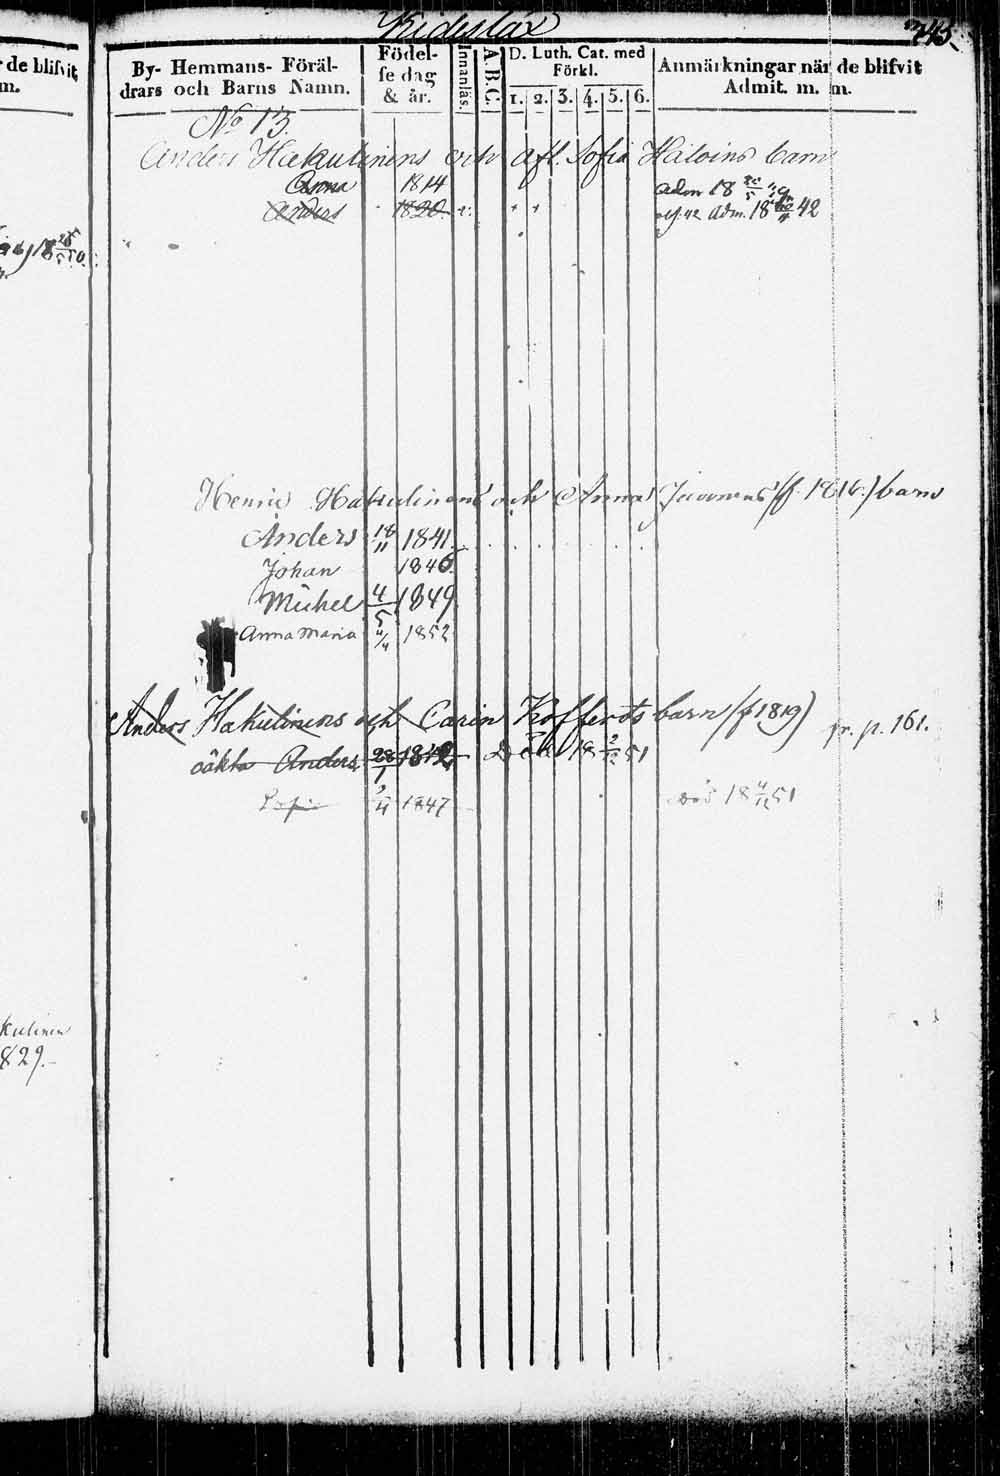 de blifvit
m.
Kideslax
By- Hemmans- Föräl-
drars och Barns Namn.
Födel-
se dag
& år.
Innanläs.
A.B.C.
D. Luth. Cat. med
Förkl.
1. 2. 3. 4. 5. 6.
Anmärkningar när de blifvit
Admit. m. m.
No 13.
Anders Hakulinens och afl. Sofia Haloins barn
Anna 1814 adm 18
Anders 1820 adm. 18 42
Henric Hakulinens och Annas (f. 1816.) barn
Anders 18/11 1841
Johan 1846
Michel 4/5 1849
Anna Maria 1852
Anders Hakulinens och Carin Kofferts barn (f 1819) fr. p. 161.
oäkta Anders 28/1 1842 Död 18 2/12 51
1847 Död 18 4/12 51
kulinen
829.